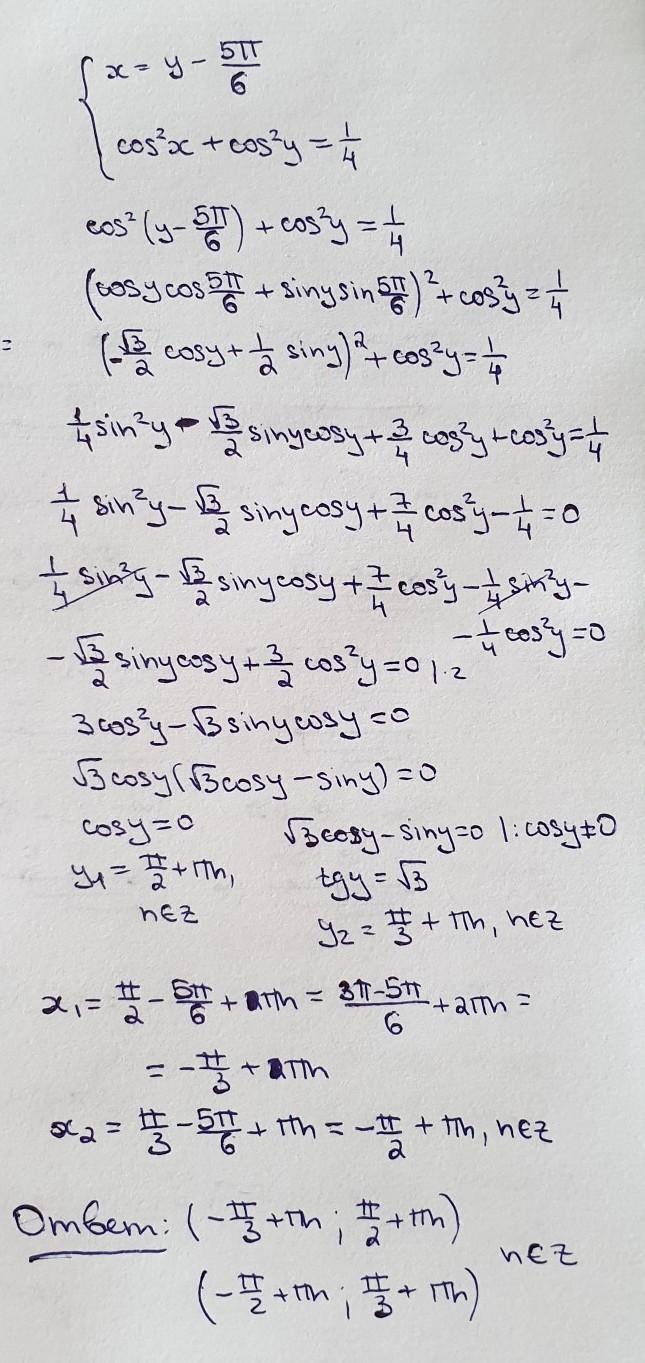 x = y - 5π/6
cos²x + cos²y = 1/4
cos²(y - 5π/6) + cos²y = 1/4
(cosy cos 5π/6 + siny sin 5π/6)² + cos²y = 1/4
= (-√3/2 cosy + 1/2 siny)² + cos²y = 1/4
1/4 sin²y - √3/2 sinycosy + 3/4 cos²y + cos²y = 1/4
1/4 sin²y - √3/2 sinycosy + 7/4 cos²y - 1/4 = 0
1/4 sin²y - √3/2 sinycosy + 7/4 cos²y - 1/4 sin²y -
- 1/4 cos²y = 0
- √3/2 sinycosy + 3/2 cos²y = 0 |·2
3cos²y - √3 sinycosy = 0
√3 cosy(√3cosy - siny) = 0
cosy = 0 √3cosy - siny = 0 |: cosy ≠ 0
y₁ = π/2 + πn, tgy = √3
n∈z y₂ = π/3 + πn, n∈z
x₁ = π/2 - 5π/6 + πn = 3π-5π/6 + 2πn =
= -π/3 + πn
x₂ = π/3 - 5π/6 + πn = -π/2 + πn, n∈z
Ответ: (-π/3 + πn ; π/2 + πn)
n∈z
(-π/2 + πn ; π/3 + πn)